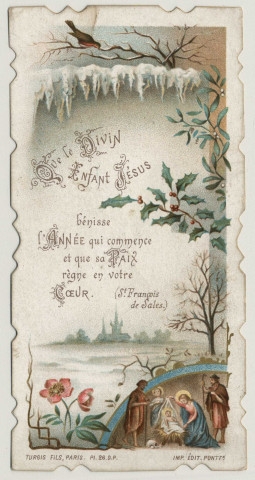 Que le Divin
Enfant Jésus
bénisse
l'Année qui commence
et que sa Paix
règne en votre
Cœur. (St François
de Sales.)
TURGIS FILS, PARIS. Pl. 98 D.P. IMP. ÉDIT. PONTFS